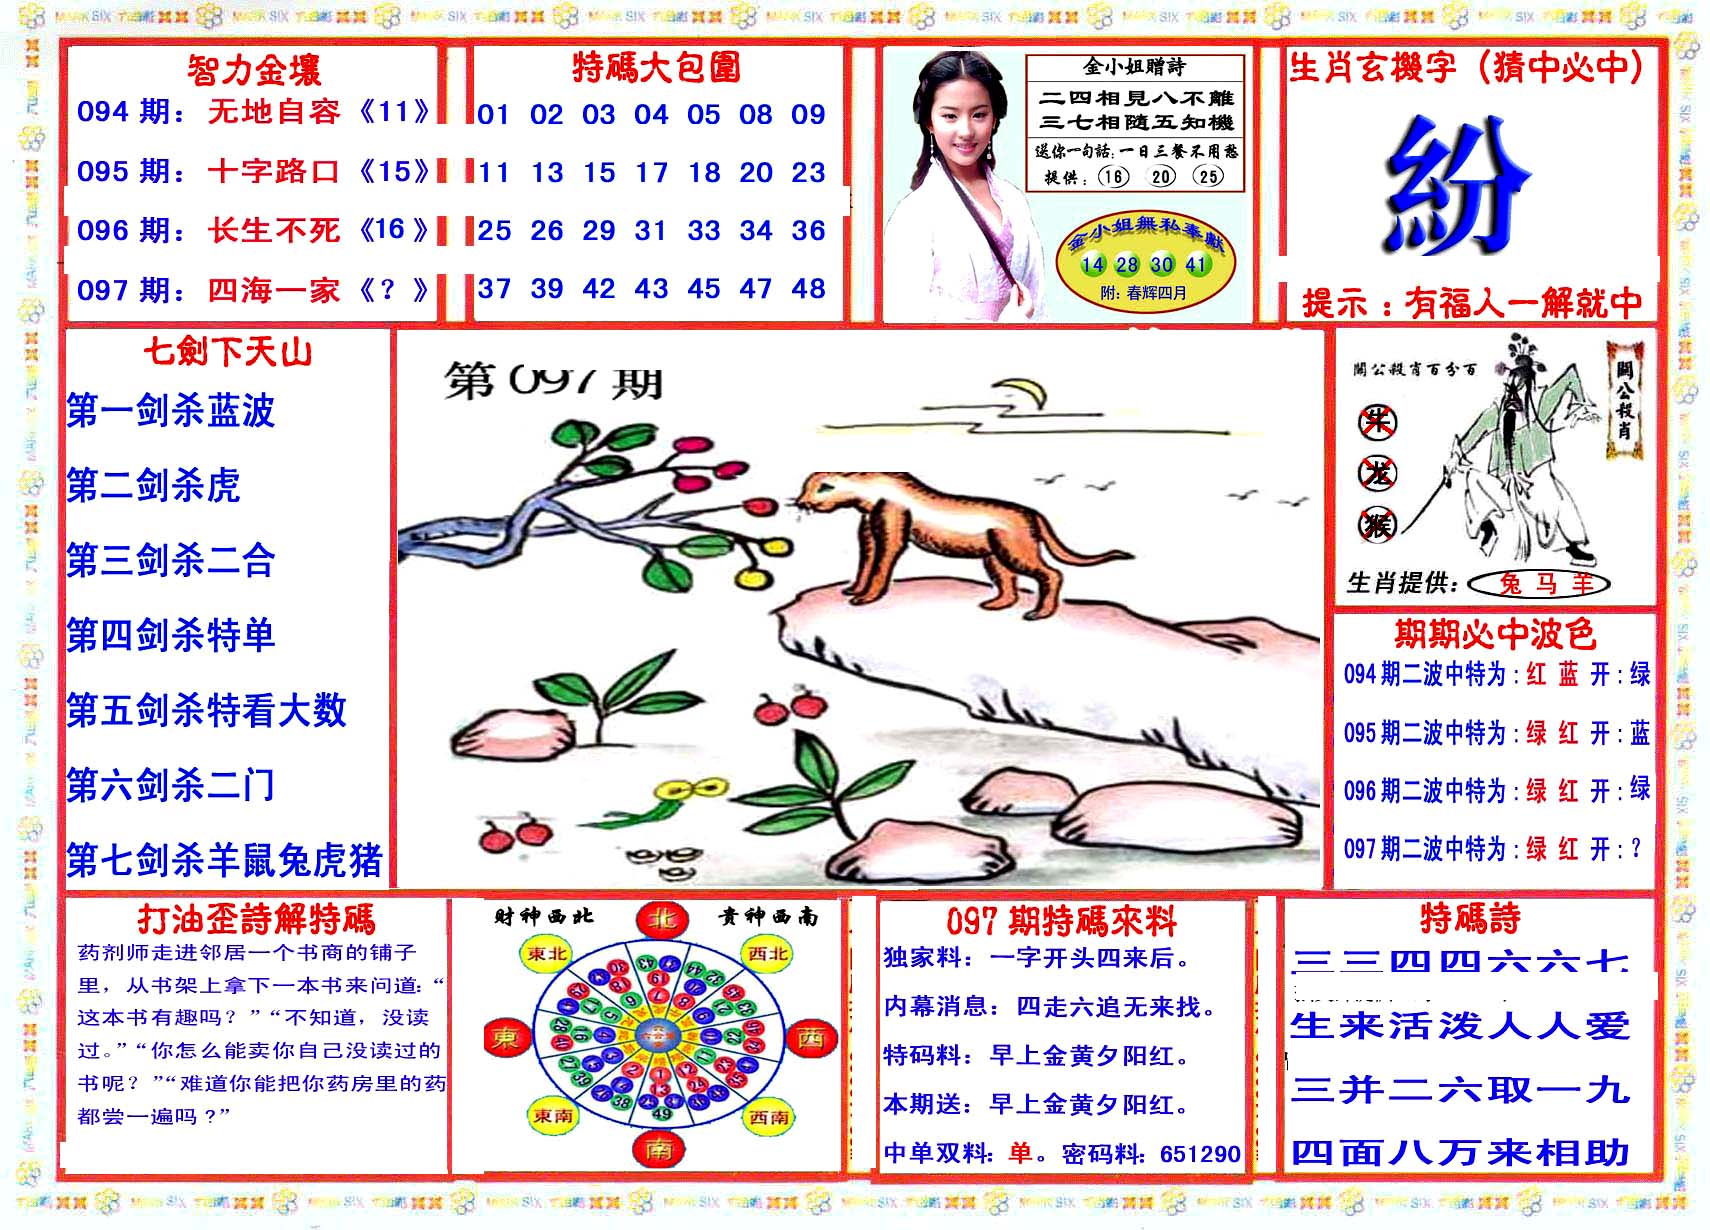 智力金壤
094 期： 无地自容 《11》
095 期： 十字路口 《15》
096 期： 长生不死 《16 》
097 期： 四海一家 《 ？ 》
特碼大包圍
01 02 03 04 05 08 09
11 13 15 17 18 20 23
25 26 29 31 33 34 36
37 39 42 43 45 47 48
金小姐贈詩
二四相見八不離
三七相隨五知機
送你一句話:一日三餐不用愁
提供： 16 20 25
金小姐無私奉獻
14 28 30 41
附: 春辉四月
生肖玄機字（猜中必中）
紛
提示：有福人一解就中
七劍下天山
第一剑杀蓝波
第二剑杀虎
第三剑杀二合
第四剑杀特单
第五剑杀特看大数
第六剑杀二门
第七剑杀羊鼠兔虎猪
第 097 期
關公殺肖百分百
關公殺肖
牛
龙
猴
生肖提供: 兔 马 羊
期期必中波色
094 期二波中特为 : 红 蓝 开 : 绿
095 期二波中特为 : 绿 红 开 : 蓝
096 期二波中特为 : 绿 红 开 : 绿
097 期二波中特为 : 绿 红 开 : ？
打油歪詩解特碼
药剂师走进邻居一个书商的铺子
里，从书架上拿下一本书来问道：“
这本书有趣吗？”“不知道，没读
过。”“你怎么能卖你自己没读过的
书呢？”“难道你能把你药房里的药
都尝一遍吗？”
財神西北
貴神西南
北
東北
西北
東
西
東南
西南
南
097 期特碼來料
独家料：一字开头四来后。
内幕消息：四走六追无来找。
特码料：早上金黄夕阳红。
本期送：早上金黄夕阳红。
中单双料：单。密码料：651290
特碼詩
三三四四六六七
生来活泼人人爱
三并二六取一九
四面八万来相助